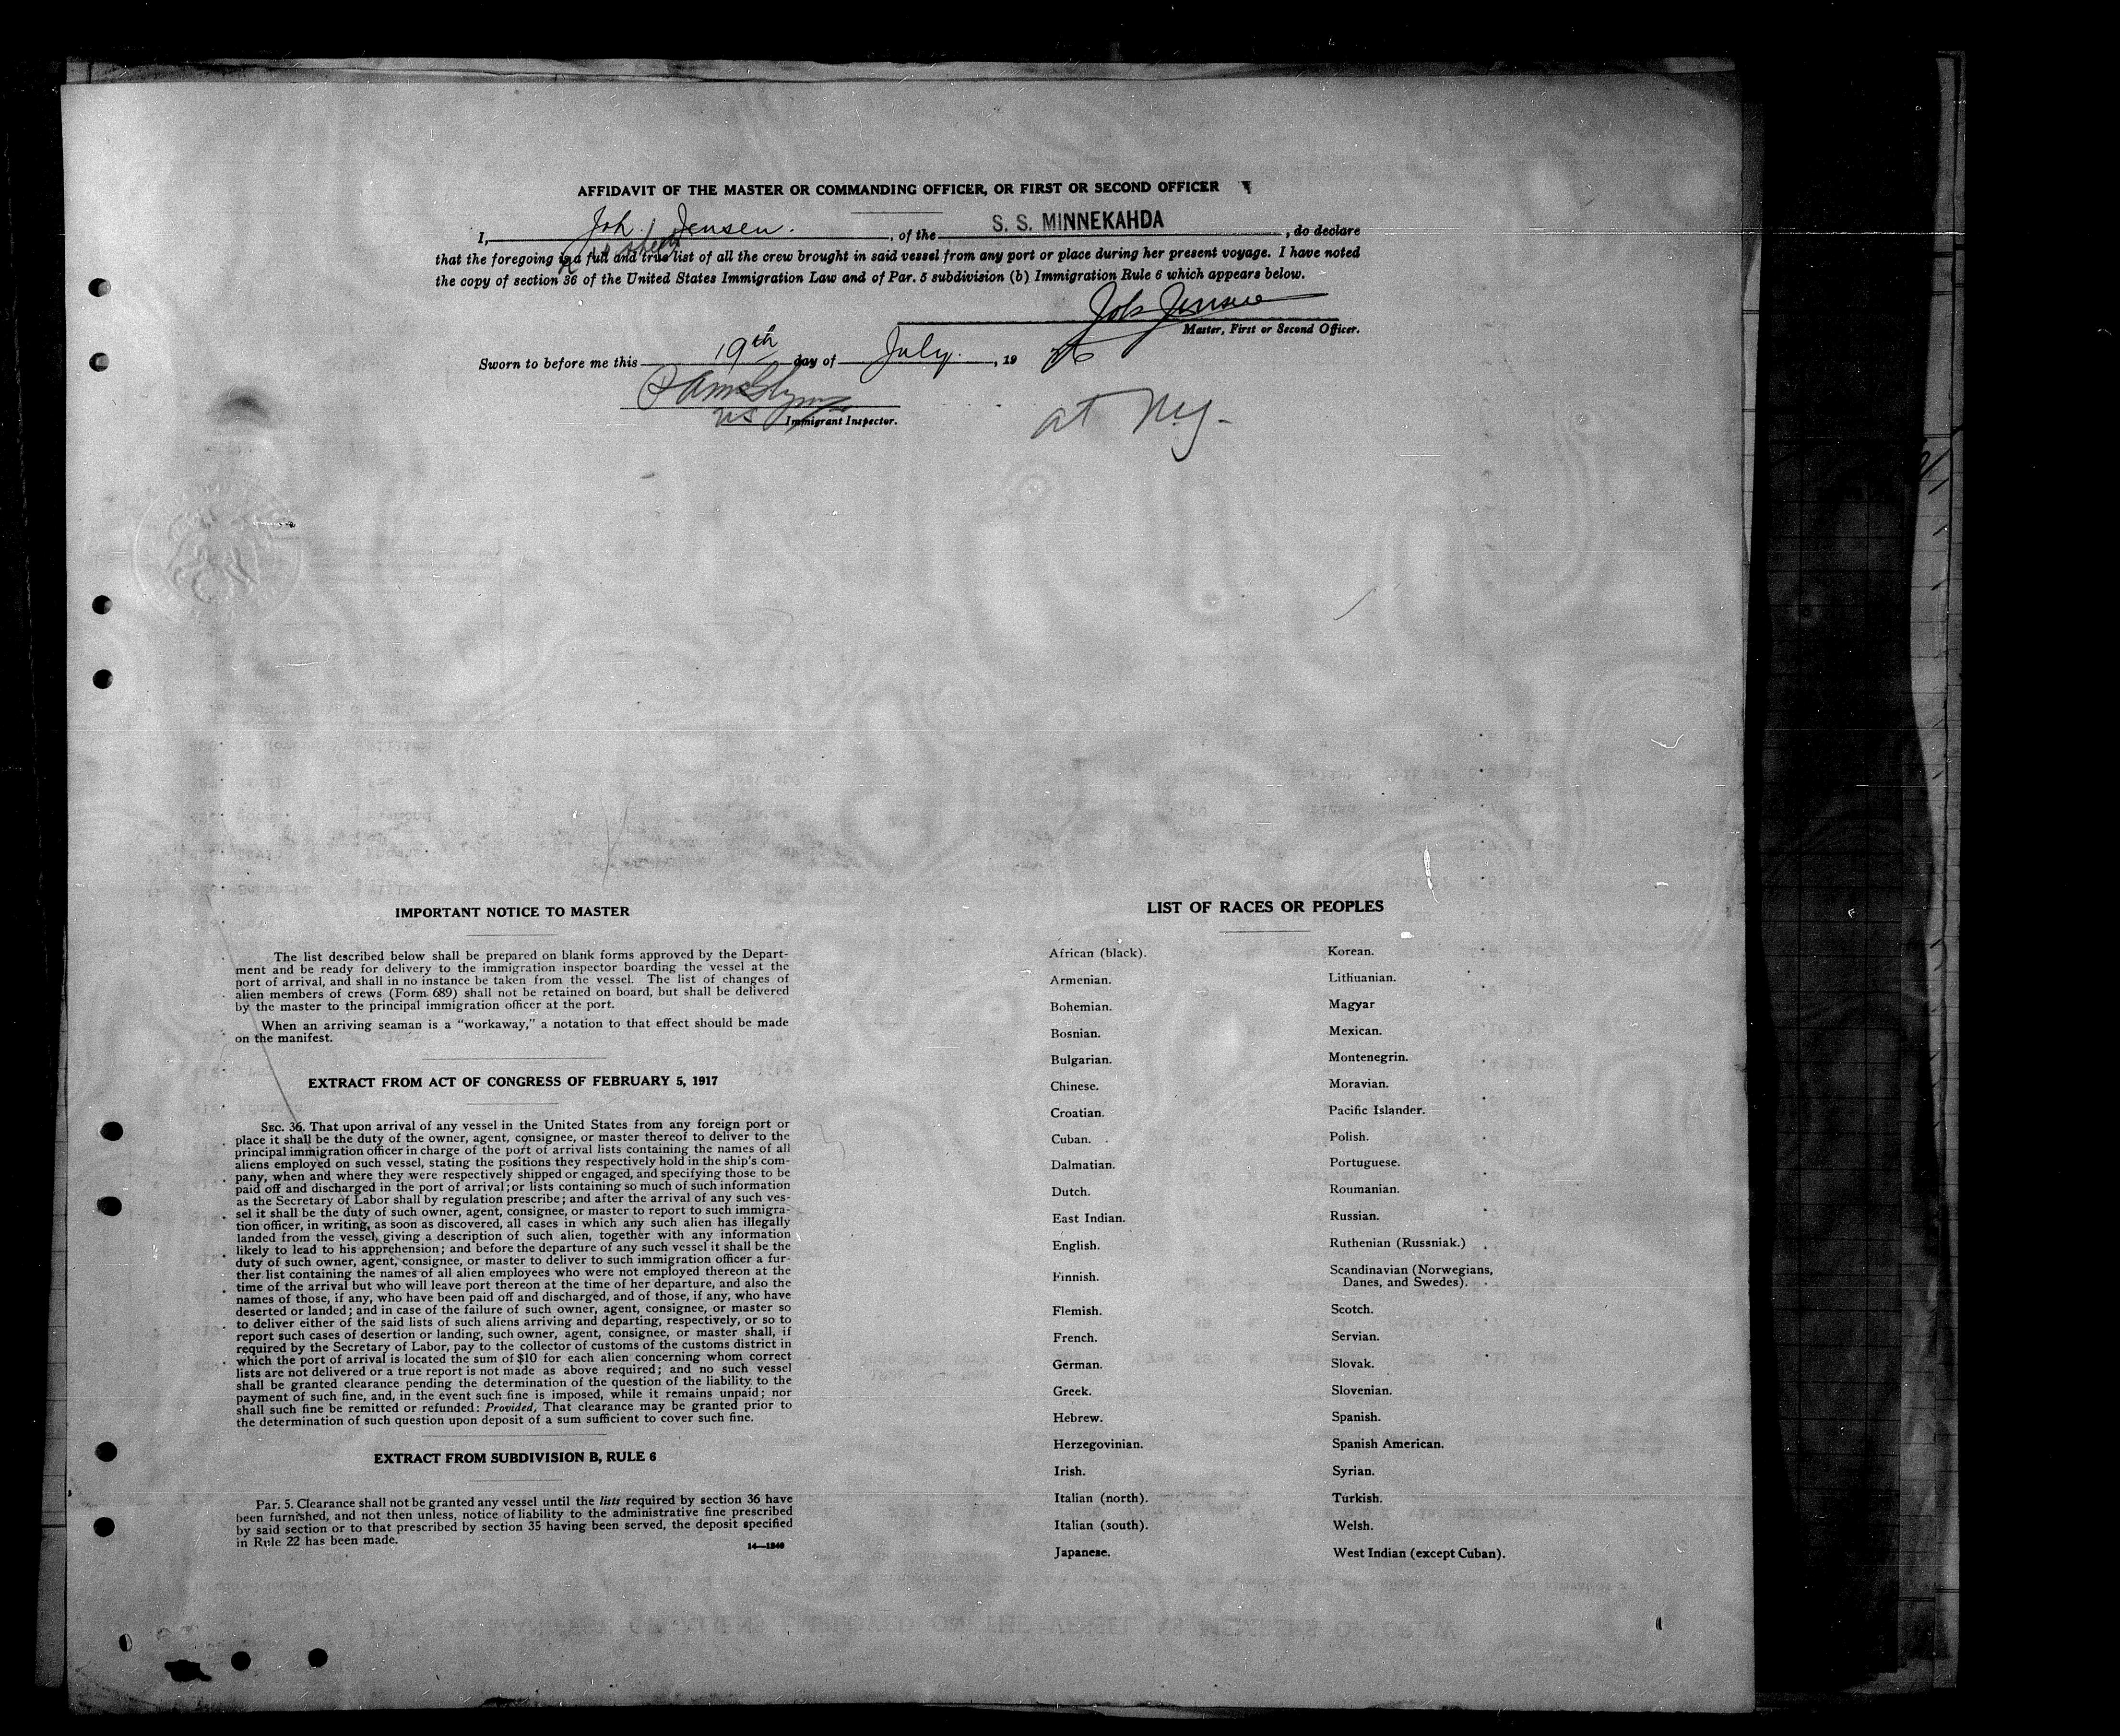 AFFIDAVIT OF THE MASTER OR COMMANDING OFFICER, OR FIRST OR SECOND OFFICER
I, Joh. Jensen. , of the S. S. MINNEKAHDA , do declare
that the foregoing is a full and true list of all the crew brought in said vessel from any port or place during her present voyage. I have noted
the copy of section 36 of the United States Immigration Law and of Par. 5 subdivision (b) Immigration Rule 6 which appears below.
Joh Jensen
Master, First or Second Officer.
Sworn to before me this 19th day of July. , 19 26
US Immigrant Inspector.
at N.Y.
IMPORTANT NOTICE TO MASTER
The list described below shall be prepared on blank forms approved by the Depart-
ment and be ready for delivery to the immigration inspector boarding the vessel at the
port of arrival, and shall in no instance be taken from the vessel. The list of changes of
alien members of crews (Form 689) shall not be retained on board, but shall be delivered
by the master to the principal immigration officer at the port.
When an arriving seaman is a "workaway," a notation to that effect should be made
on the manifest.
EXTRACT FROM ACT OF CONGRESS OF FEBRUARY 5, 1917
SEC. 36. That upon arrival of any vessel in the United States from any foreign port or
place it shall be the duty of the owner, agent, consignee, or master thereof to deliver to the
principal immigration officer in charge of the port of arrival lists containing the names of all
aliens employed on such vessel, stating the positions they respectively hold in the ship's com-
pany, when and where they were respectively shipped or engaged, and specifying those to be
paid off and discharged in the port of arrival; or lists containing so much of such information
as the Secretary of Labor shall by regulation prescribe; and after the arrival of any such ves-
sel it shall be the duty of such owner, agent, consignee, or master to report to such immigra-
tion officer, in writing, as soon as discovered, all cases in which any such alien has illegally
landed from the vessel, giving a description of such alien, together with any information
likely to lead to his apprehension; and before the departure of any such vessel it shall be the
duty of such owner, agent, consignee, or master to deliver to such immigration officer a fur-
ther list containing the names of all alien employees who were not employed thereon at the
time of the arrival but who will leave port thereon at the time of her departure, and also the
names of those, if any, who have been paid off and discharged, and of those, if any, who have
deserted or landed; and in case of the failure of such owner, agent, consignee, or master so
to deliver either of the said lists of such aliens arriving and departing, respectively, or so to
report such cases of desertion or landing, such owner, agent, consignee, or master shall, if
required by the Secretary of Labor, pay to the collector of customs of the customs district in
which the port of arrival is located the sum of $10 for each alien concerning whom correct
lists are not delivered or a true report is not made as above required; and no such vessel
shall be granted clearance pending the determination of the question of the liability to the
payment of such fine, and, in the event such fine is imposed, while it remains unpaid; nor
shall such fine be remitted or refunded: Provided, That clearance may be granted prior to
the determination of such question upon deposit of a sum sufficient to cover such fine.
EXTRACT FROM SUBDIVISION B, RULE 6
Par. 5. Clearance shall not be granted any vessel until the lists required by section 36 have
been furnished, and not then unless, notice of liability to the administrative fine prescribed
by said section or to that prescribed by section 35 having been served, the deposit specified
in Rule 22 has been made.
14—1240
LIST OF RACES OR PEOPLES
African (black).
Armenian.
Bohemian.
Bosnian.
Bulgarian.
Chinese.
Croatian.
Cuban.
Dalmatian.
Dutch.
East Indian.
English.
Finnish.
Flemish.
French.
German.
Greek.
Hebrew.
Herzegovinian.
Irish.
Italian (north).
Italian (south).
Japanese.
Korean.
Lithuanian.
Magyar
Mexican.
Montenegrin.
Moravian.
Pacific Islander.
Polish.
Portuguese.
Roumanian.
Russian.
Ruthenian (Russniak.)
Scandinavian (Norwegians,
Danes, and Swedes).
Scotch.
Servian.
Slovak.
Slovenian.
Spanish.
Spanish American.
Syrian.
Turkish.
Welsh.
West Indian (except Cuban).